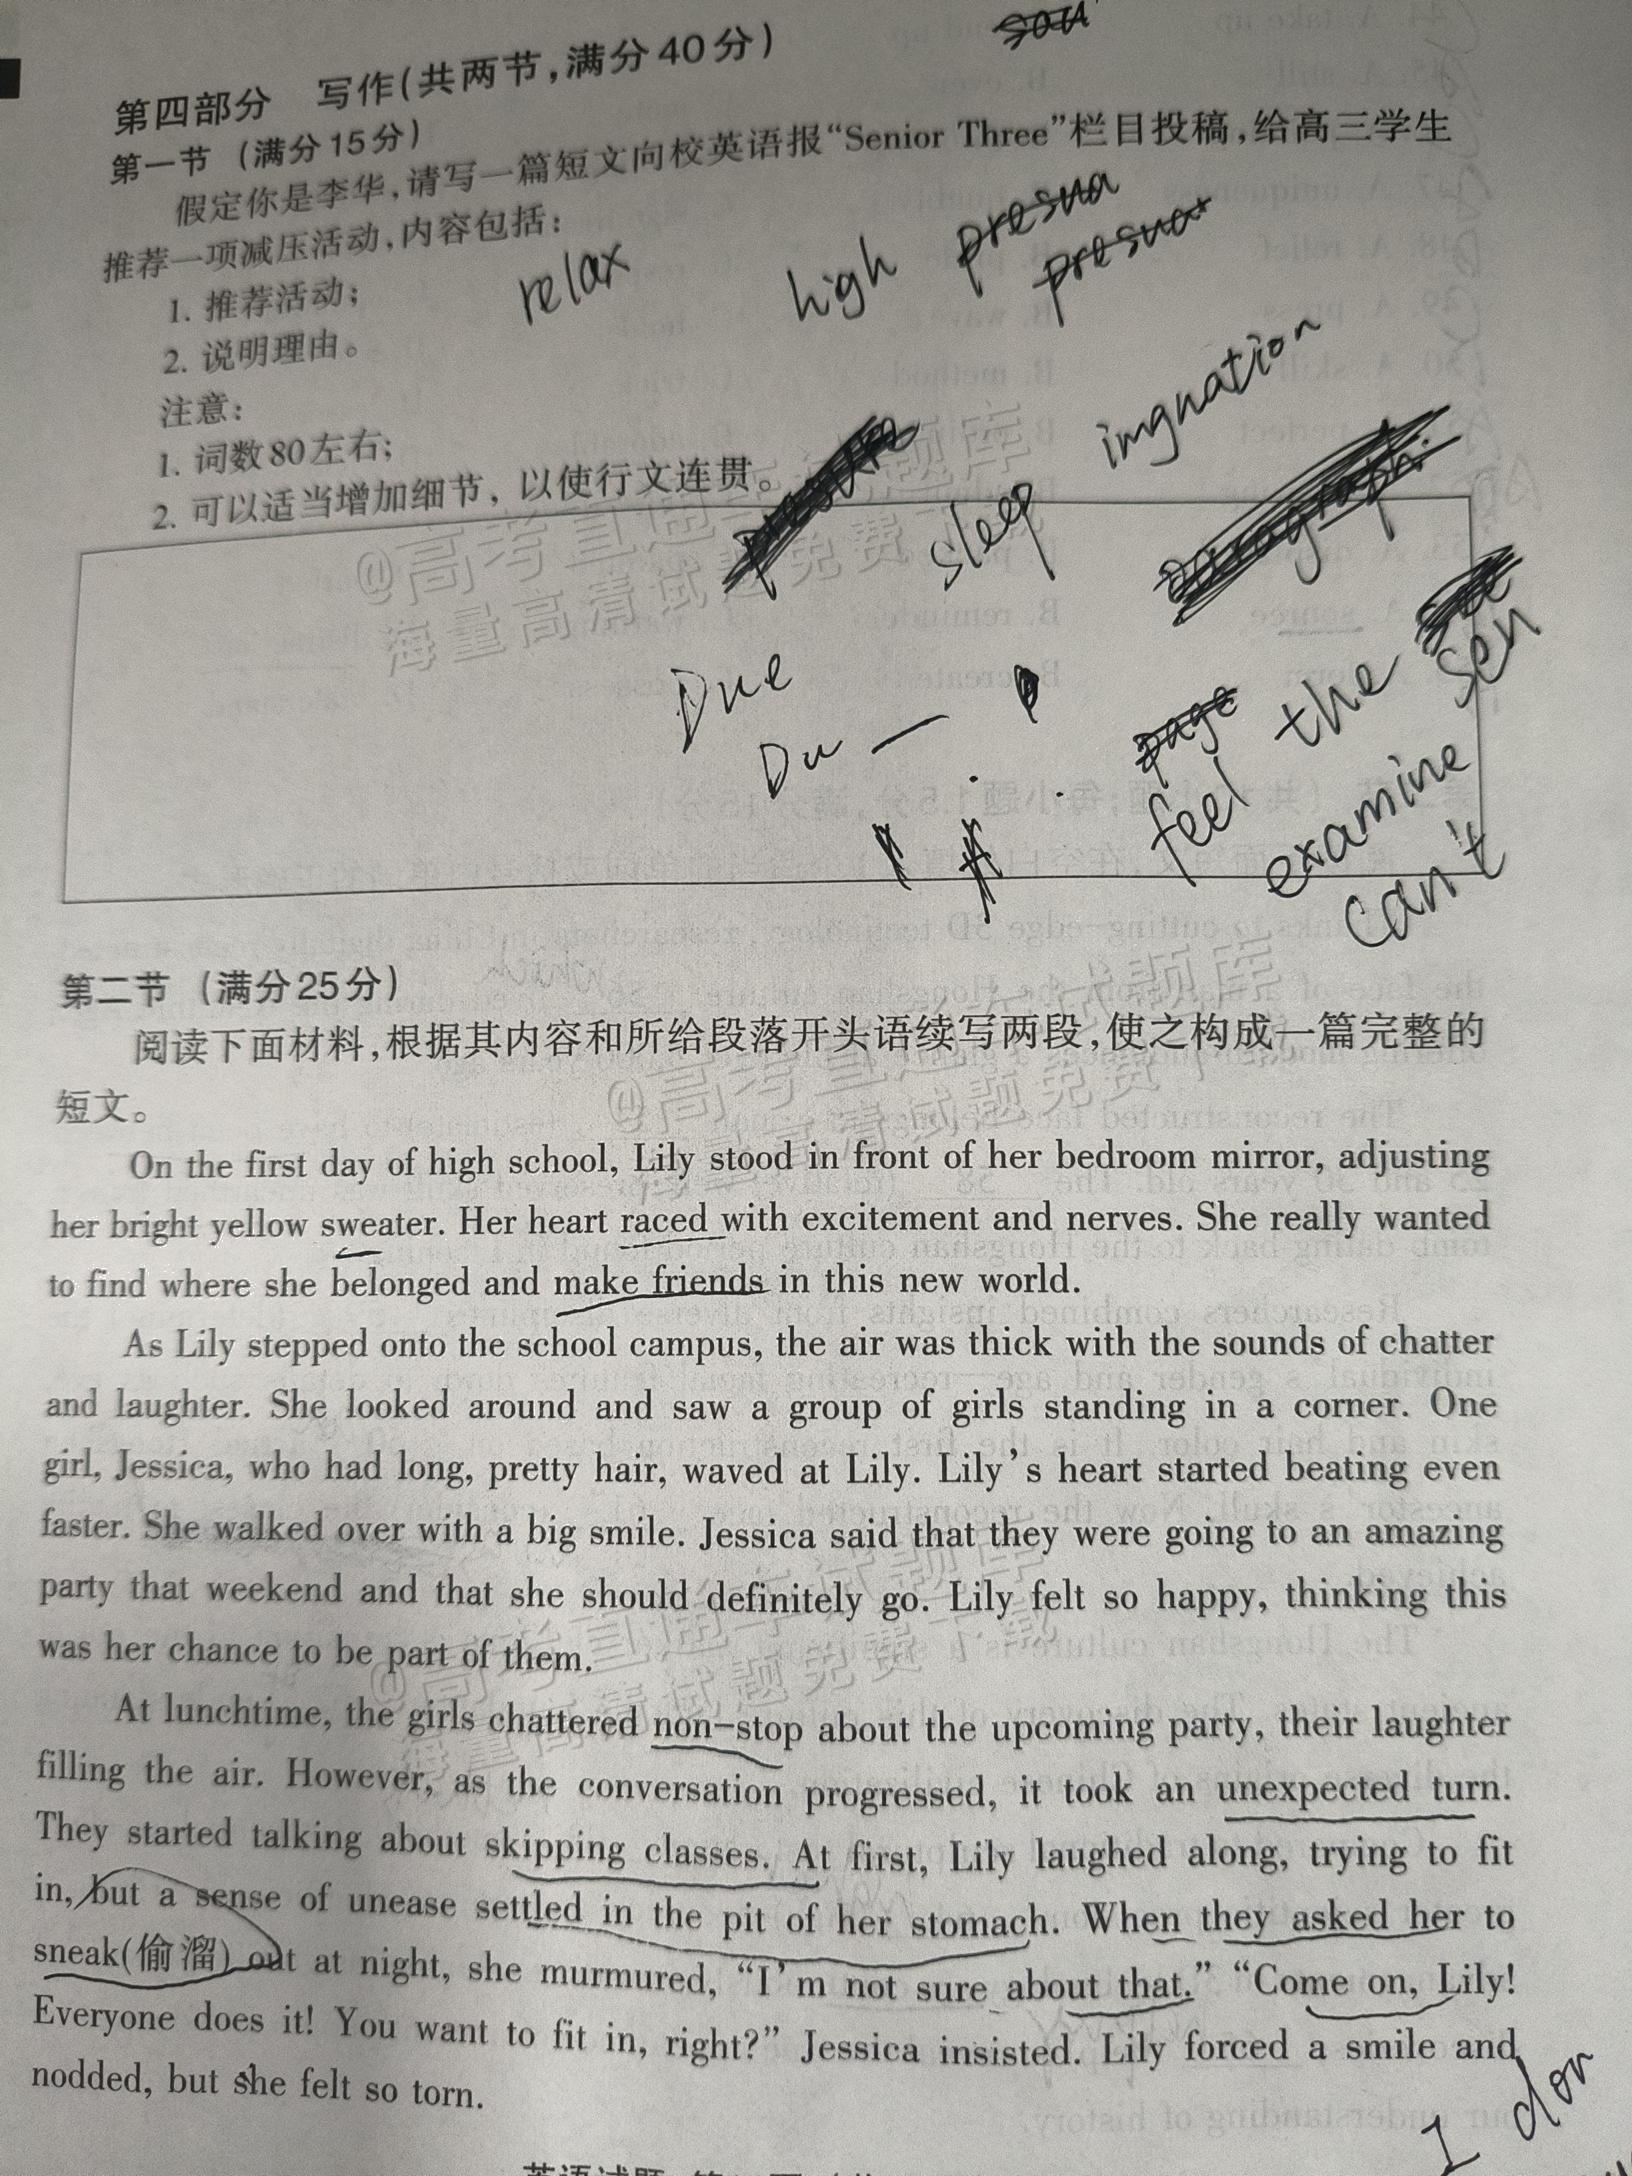 sou
第四部分 写作(共两节,满分40分)
第一节 (满分15分)
假定你是李华,请写一篇短文向校英语报“Senior Three”栏目投稿,给高三学生
推荐一项减压活动,内容包括:
1. 推荐活动;
2. 说明理由。
注意:
1. 词数80左右;
2. 可以适当增加细节,以使行文连贯。
relax
high presua
presuar
imgnation
sleep
Due
Du —
page
feel the sen
examine
can't
@高考直通车试题库
海量高清试题免费下载
第二节 (满分25分)
阅读下面材料,根据其内容和所给段落开头语续写两段,使之构成一篇完整的
短文。
@高考直通车试题库
海量高清试题免费下载
On the first day of high school, Lily stood in front of her bedroom mirror, adjusting
her bright yellow sweater. Her heart raced with excitement and nerves. She really wanted
to find where she belonged and make friends in this new world.
As Lily stepped onto the school campus, the air was thick with the sounds of chatter
and laughter. She looked around and saw a group of girls standing in a corner. One
girl, Jessica, who had long, pretty hair, waved at Lily. Lily's heart started beating even
faster. She walked over with a big smile. Jessica said that they were going to an amazing
party that weekend and that she should definitely go. Lily felt so happy, thinking this
was her chance to be part of them.
@高考直通车试题库
海量高清试题免费下载
At lunchtime, the girls chattered non-stop about the upcoming party, their laughter
filling the air. However, as the conversation progressed, it took an unexpected turn.
They started talking about skipping classes. At first, Lily laughed along, trying to fit
in, but a sense of unease settled in the pit of her stomach. When they asked her to
sneak(偷溜) out at night, she murmured, “I'm not sure about that.” “Come on, Lily!
Everyone does it! You want to fit in, right?” Jessica insisted. Lily forced a smile and
nodded, but she felt so torn.
I don